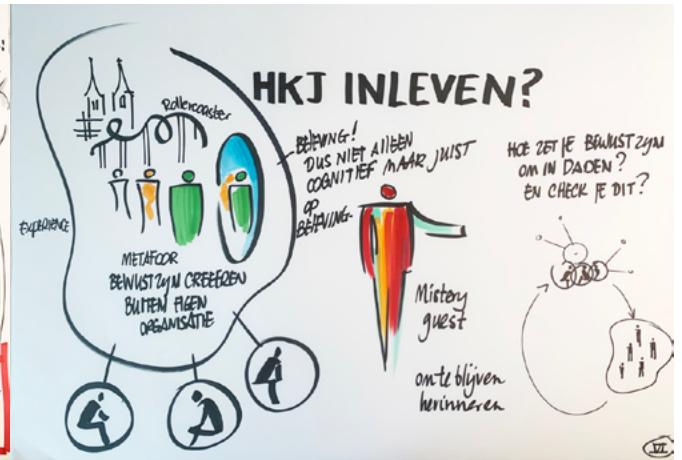 HKJ INLEVEN?
Rollercoaster
EXPERIENCE
METAFOOR
BEWUSTZIJN CREËEREN
BUITEN EIGEN
ORGANISATIE
BELEVING!
DUS NIET ALLEEN
COGNITIEF MAAR JUIST
OP
BELEVING.
Mistery
guest
om te blijven
herinneren
HOE ZET JE BEWUSTZIJN
OM IN DADEN?
EN CHECK JE DIT?
VI